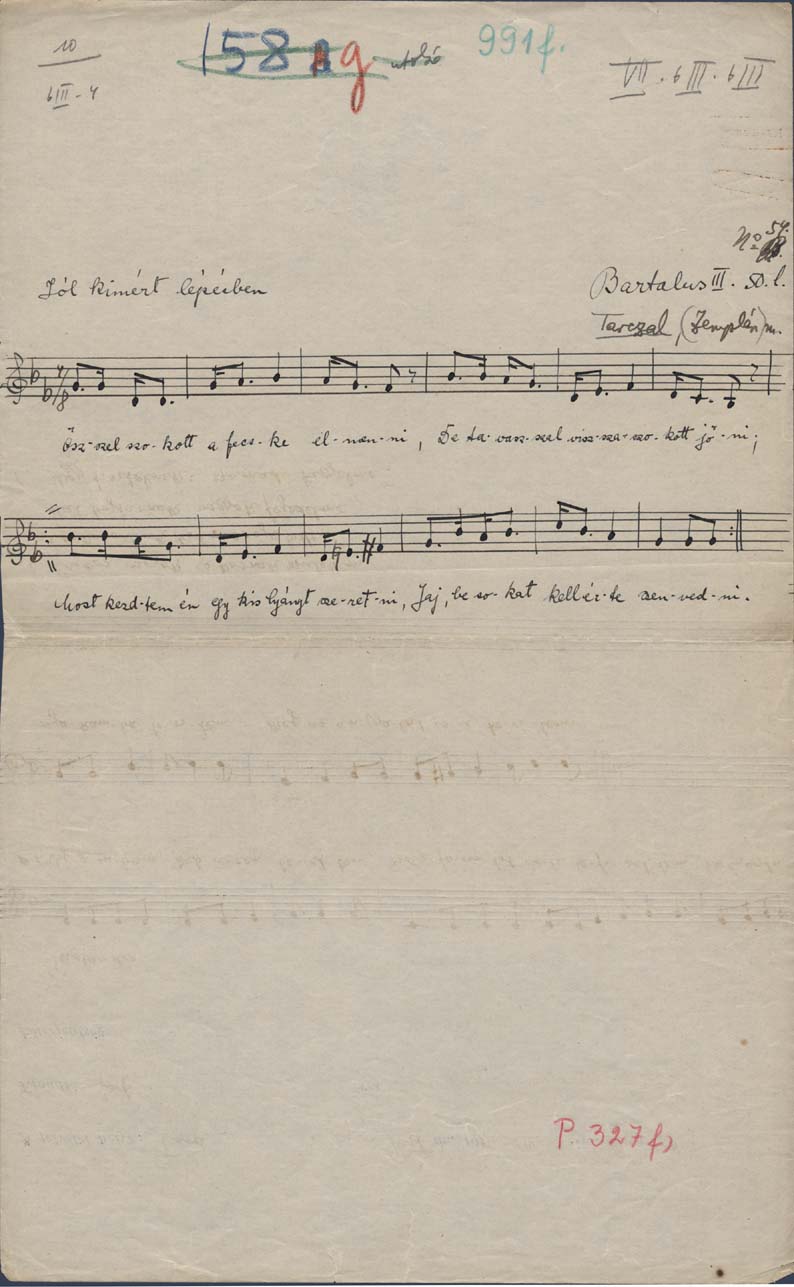 10
158 g utolsó 991f.
bIII - 4
VII · bIII · bIII
No 54.
Jól kimért lépésben
Bartalus III. 
Tarczal, (Zemplén) m.
4/8
Ősz-szel szo-kott a fecs-ke el-men-ni, De ta-vasz-szal visz-sza-szo-kott jő-ni;
Most kezd-tem én egy kis lyányt sze-ret-ni, Jaj, be so-kat kell ér-te szen-ved-ni.
P. 327f)